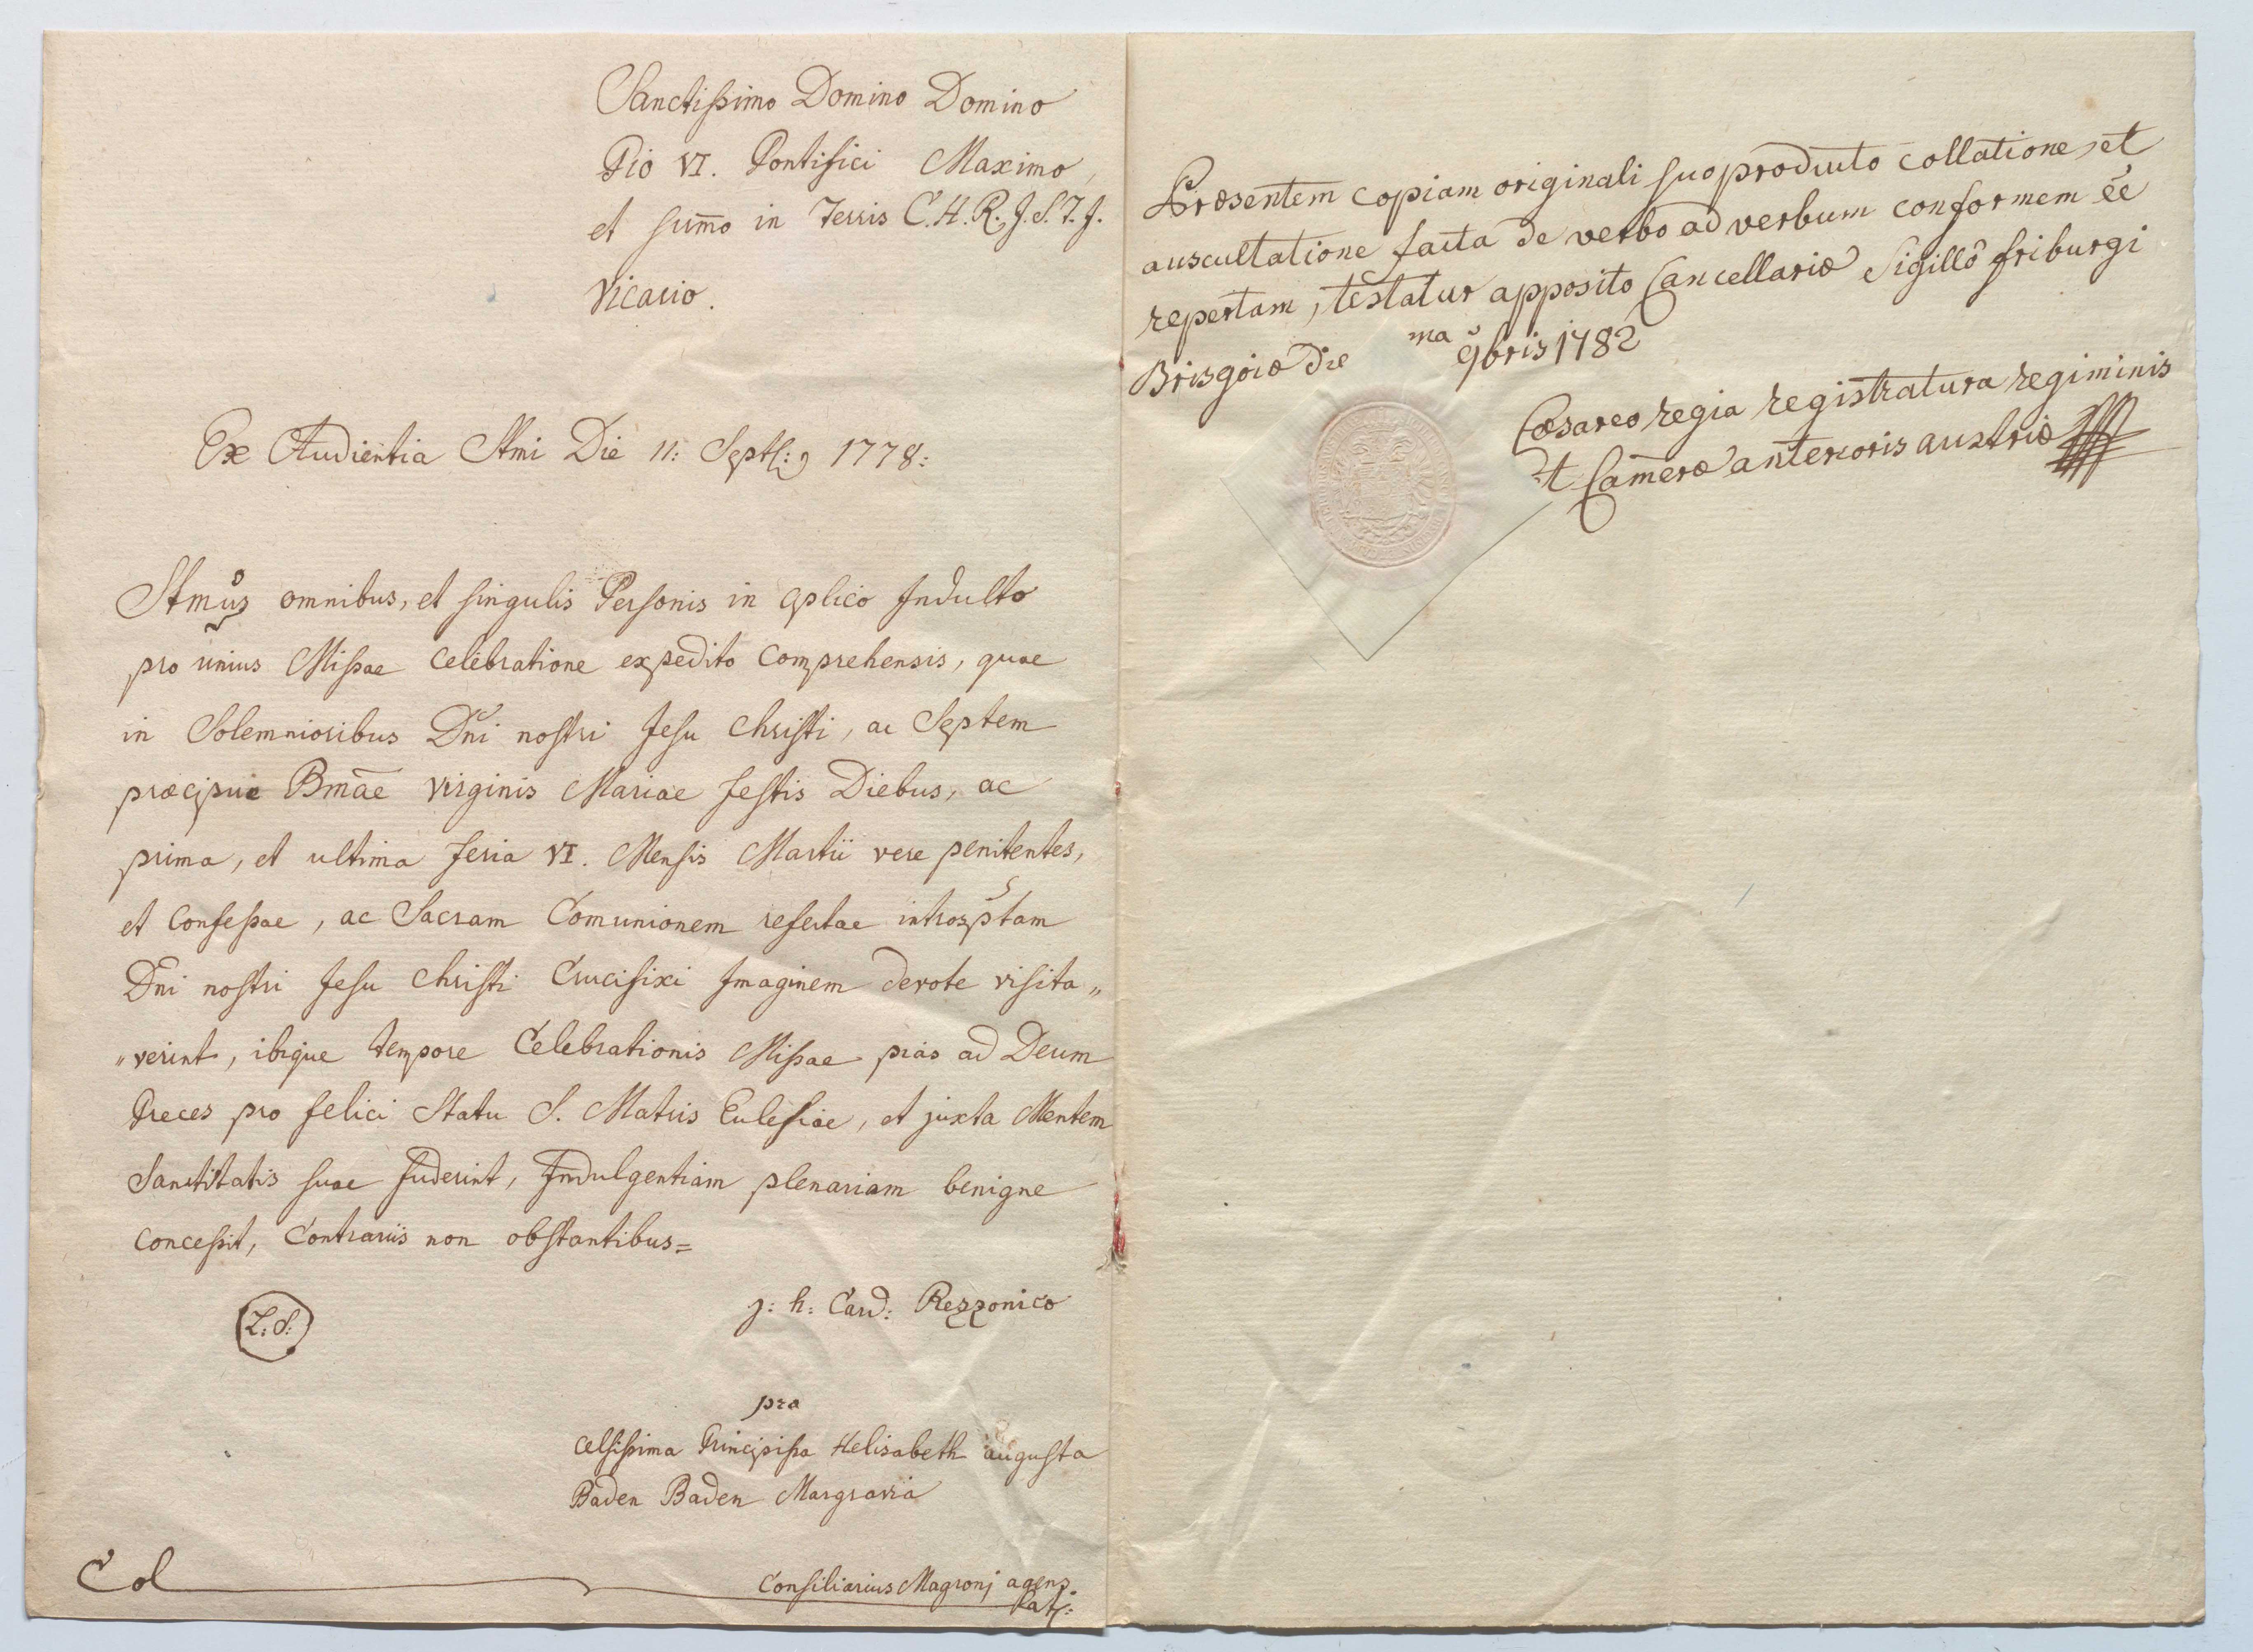 Sanctissimo Domino Domino
Pio VI. Pontifici Maximo,
et summo in Terris C.H.R.J.S.T.J.
Vicario.
Ex Audientia Ssmi Die 11: Septb: 1778:
Ssmus omnibus, et singulis Personis in aplico Indulto
pro unius Missae celebratione expedito comprehensis, quae
in Solemnioribus Dni nostri Jesu Christi, ac Septem
praecipue Bmae Virginis Mariae festis Diebus, ac
prima, et ultima feria VI. Mensis Martii vere penitentes,
et Confessae, ac Sacram Comunionem refectae introsptam
Dni nostri Jesu Christi Crucifixi Imaginem devote visita„
„verint, ibique tempore Celebrationis Missae pias ad Deum
Preces pro felici Statu S. Matris Eclesiae, et juxta Mentem
Sanctitatis suae fuderint, Indulgentiam plenariam benigne
concessit, Contrariis non obstantibus=
L: S:
J: h: Card: Rezzonico
pra
Celsissima Principissa Helisabeth augusta
Baden Baden Margravia
Col
Consiliarius Magronj agens
Præsentem copiam originali suo producto collatione, et
auscultatione facta de verbo ad verbum conformem ee
repertam, testatur apposito Cancellariæ Sigillo friburgi
Brisgoiæ die ma 9bris 1782
Cæsareo regia registratura regiminis
et Cameræ anterioris austriæ